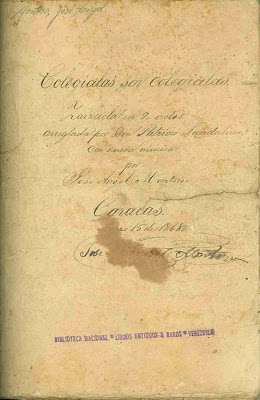 Montero, José Angel
Colegialas son colegialas.
Zarzuela en 2 actos
arreglada por Don
Con nueva musica
por
José Angel Montero
Caracas.
15 de 1868
José Montero
BIBLIOTECA NACIONAL * LIBROS ANTIGUOS & RAROS * VENEZUELA